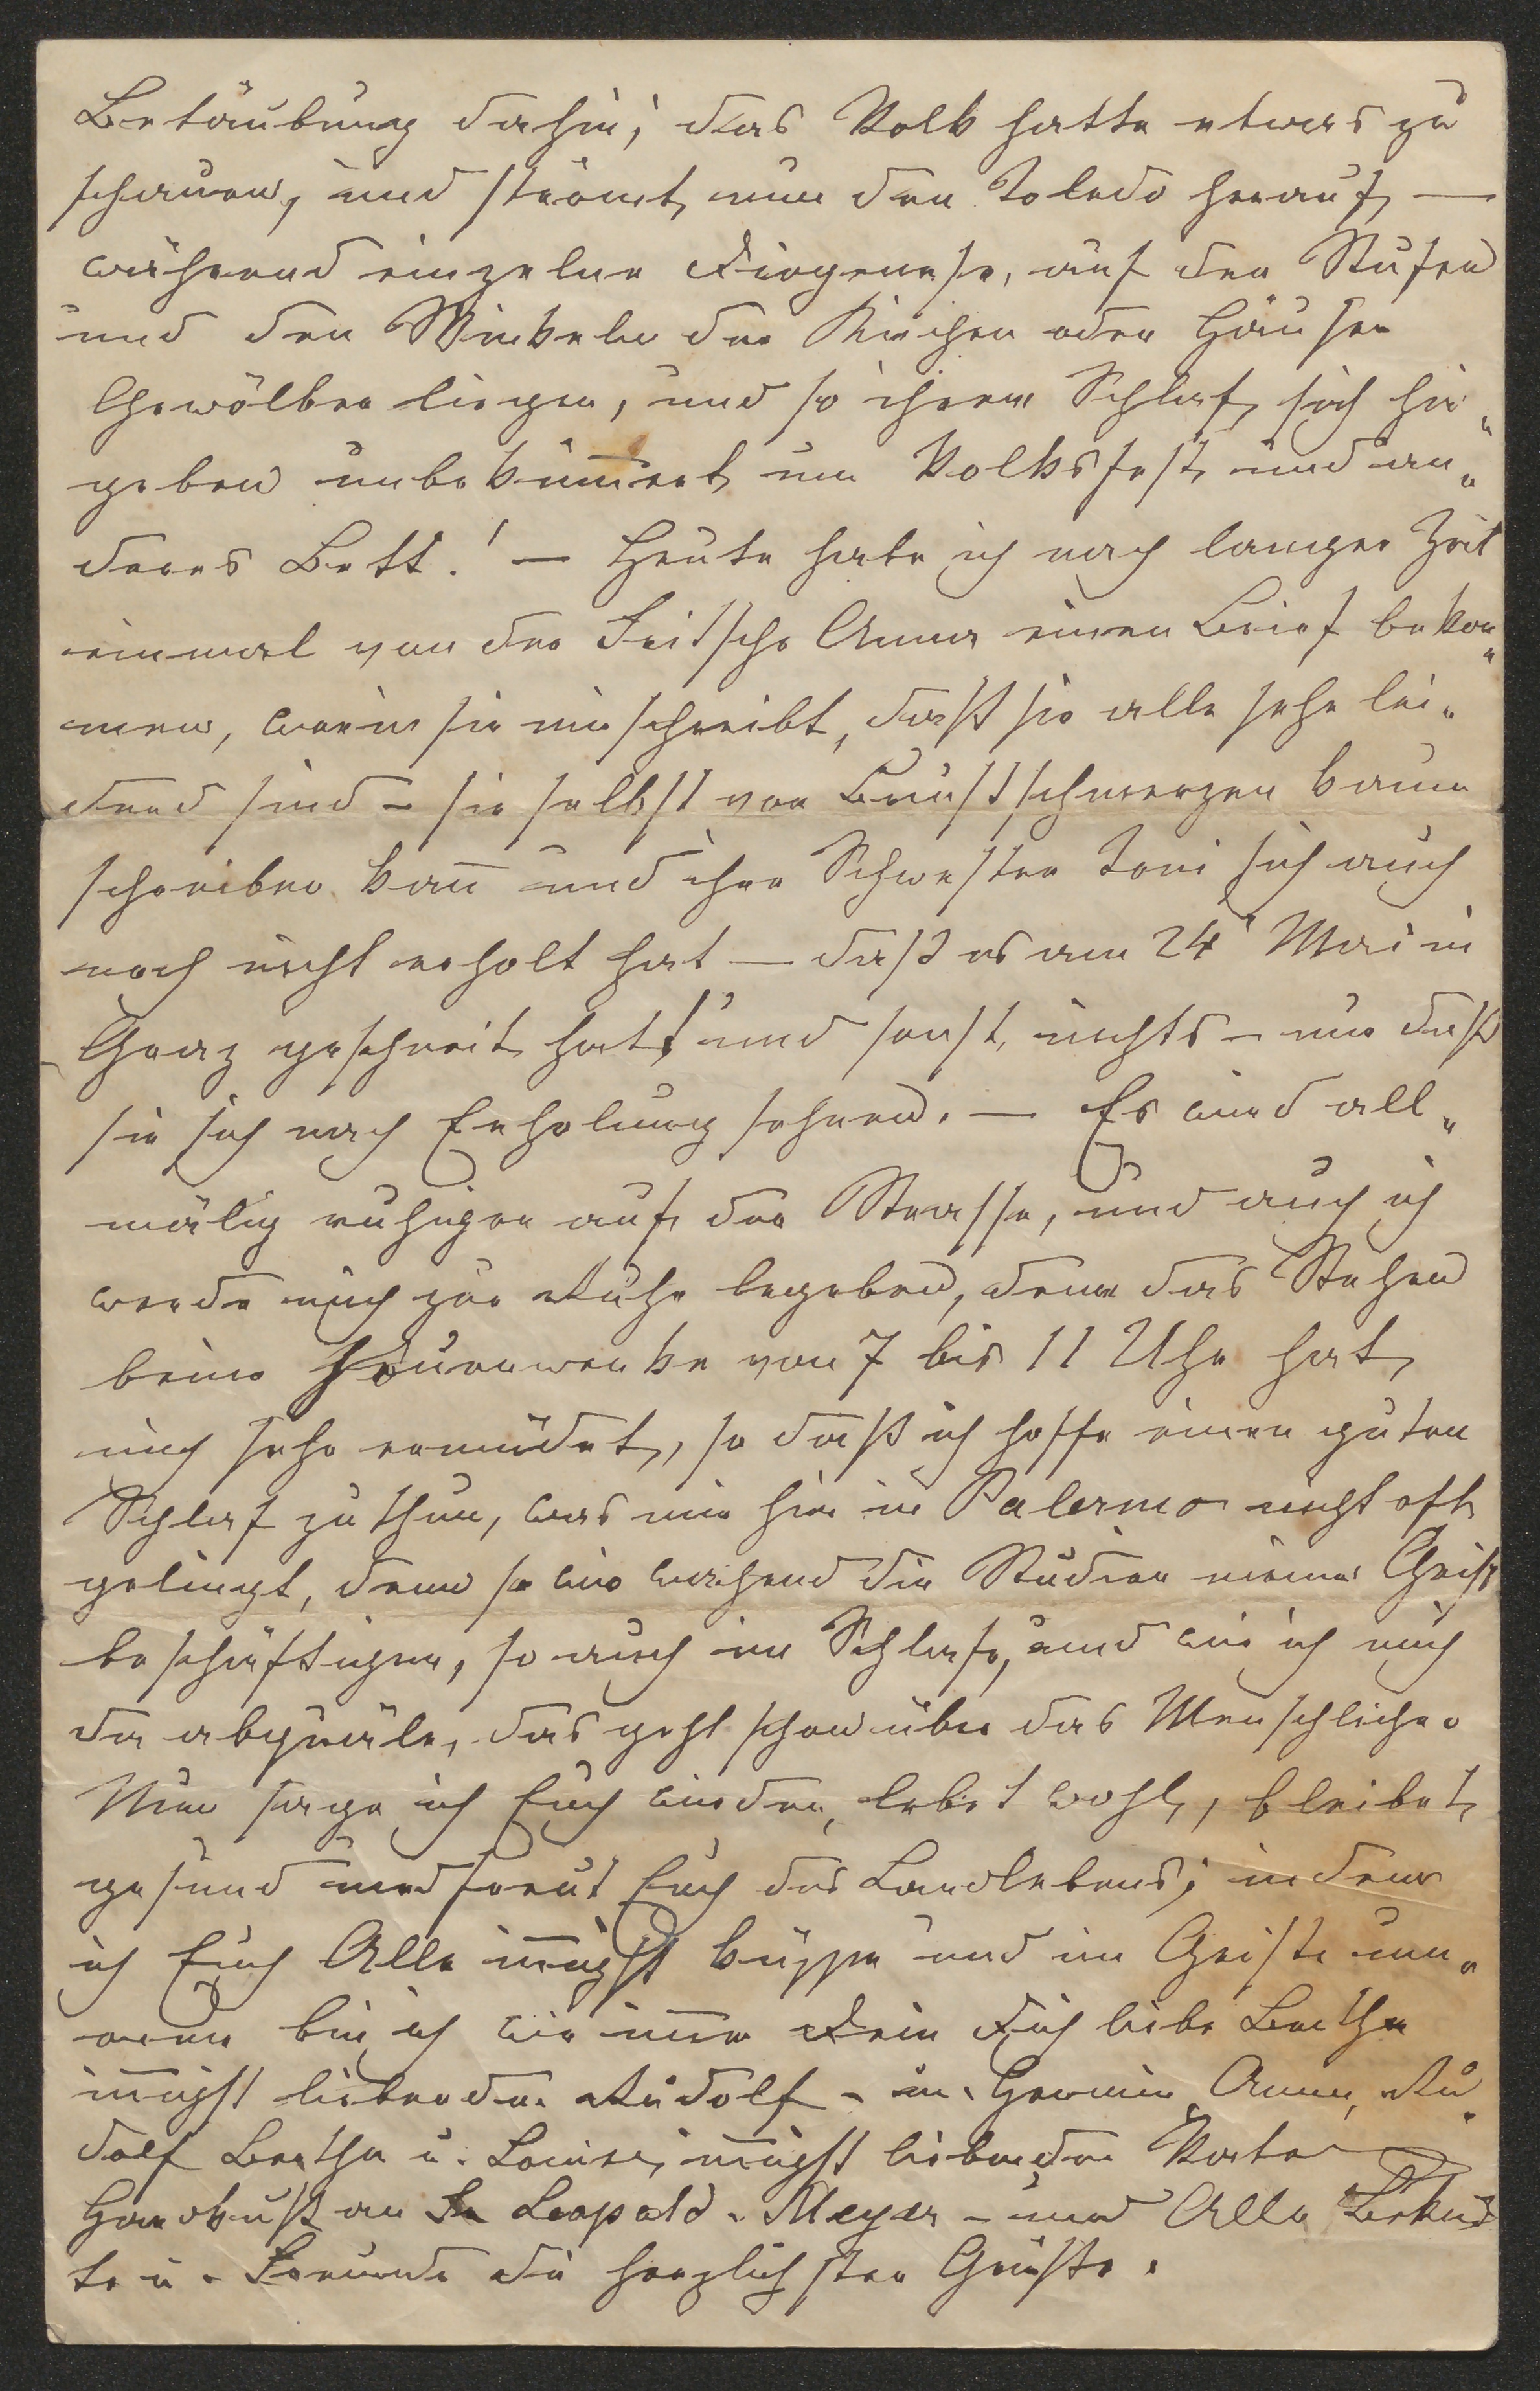 Betäubung dahin; das Volk hatte etwas zu
schauen, und strömt nun den Toledo herauf, —
während einzelne Diogenese, auf den Stufen
und den Winkeln der Kirchen oder Häuser
Gewölben liegen, und so ihrem Schlaf sich hin„
geben unbekümmert um Volksfest und an„
deres Bett! — Heute habe ich nach langer Zeit
einmal von der Fritsche Anna einen Brief bekom„
men, worin sie mir schreibt, daß sie alle sehr lei„
dend sind – sie selbst vor Brustschmerzen kaum
schreiben kan̅ und ihre Schwester Toni sich auch
noch nicht erholt hat — daß es am 24' Mai in
Graz geschneit hat! und sonst nichts – nur daß
sie sich nach Erholung sehnen. — Es wird all„
mälig ruhiger auf der Strasse, und auch ich
werde mich zur Ruhe begeben, denn das Stehen
beim Feuerwerke von 7 bis 11 Uhr hat,
mich sehr ermüdet, so daß ich hoffe einen guten
Schlaf zu thun, was mir hier in Palermo nicht oft
gelingt, denn so wie wachend die Studien meinen Geist
beschäftigen, so auch im Schlafe, und wie ich mich
da abquäle, das geht schon über das Menschliche.
Nun sage ich Euch wieder, lebet wohl, bleibet
gesund und freut Euch des Landlebens; indem
ich Euch Alle in̅igst küsse und im Geiste um„
arme bin ich wie im̅er Dein Dich liebe Bertha
in̅igst liebender Rudolf – u. Hermine Anna, Ru„
dolf Bertha u. Louise, in̅igst liebender Vater
Handkuß an Leopold. Meyer – und Alle Bekan̅
te u. Freunde die herzlichsten Grüße.